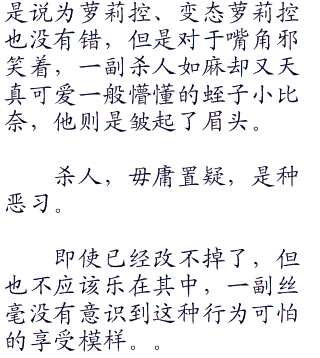 是说为萝莉控、变态萝莉控
也没有错，但是对于嘴角邪
笑着，一副杀人如麻却又天
真可爱一般懵懂的蛭子小比
奈，他则是皱起了眉头。
杀人，毋庸置疑，是种
恶习。
即使已经改不掉了，但
也不应该乐在其中，一副丝
毫没有意识到这种行为可怕
的享受模样。。